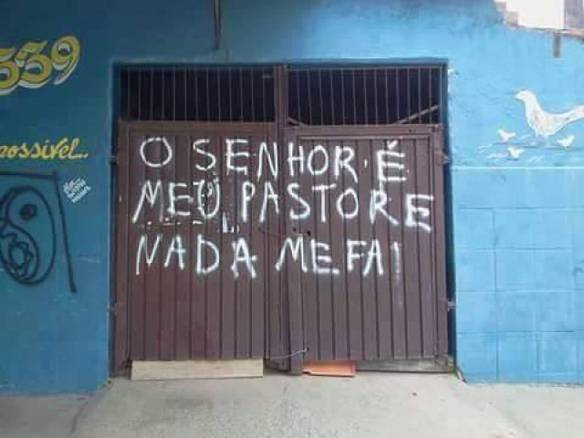 339
possível...
O SENHOR·É
MEU PASTOR E
NADA ME.FAI